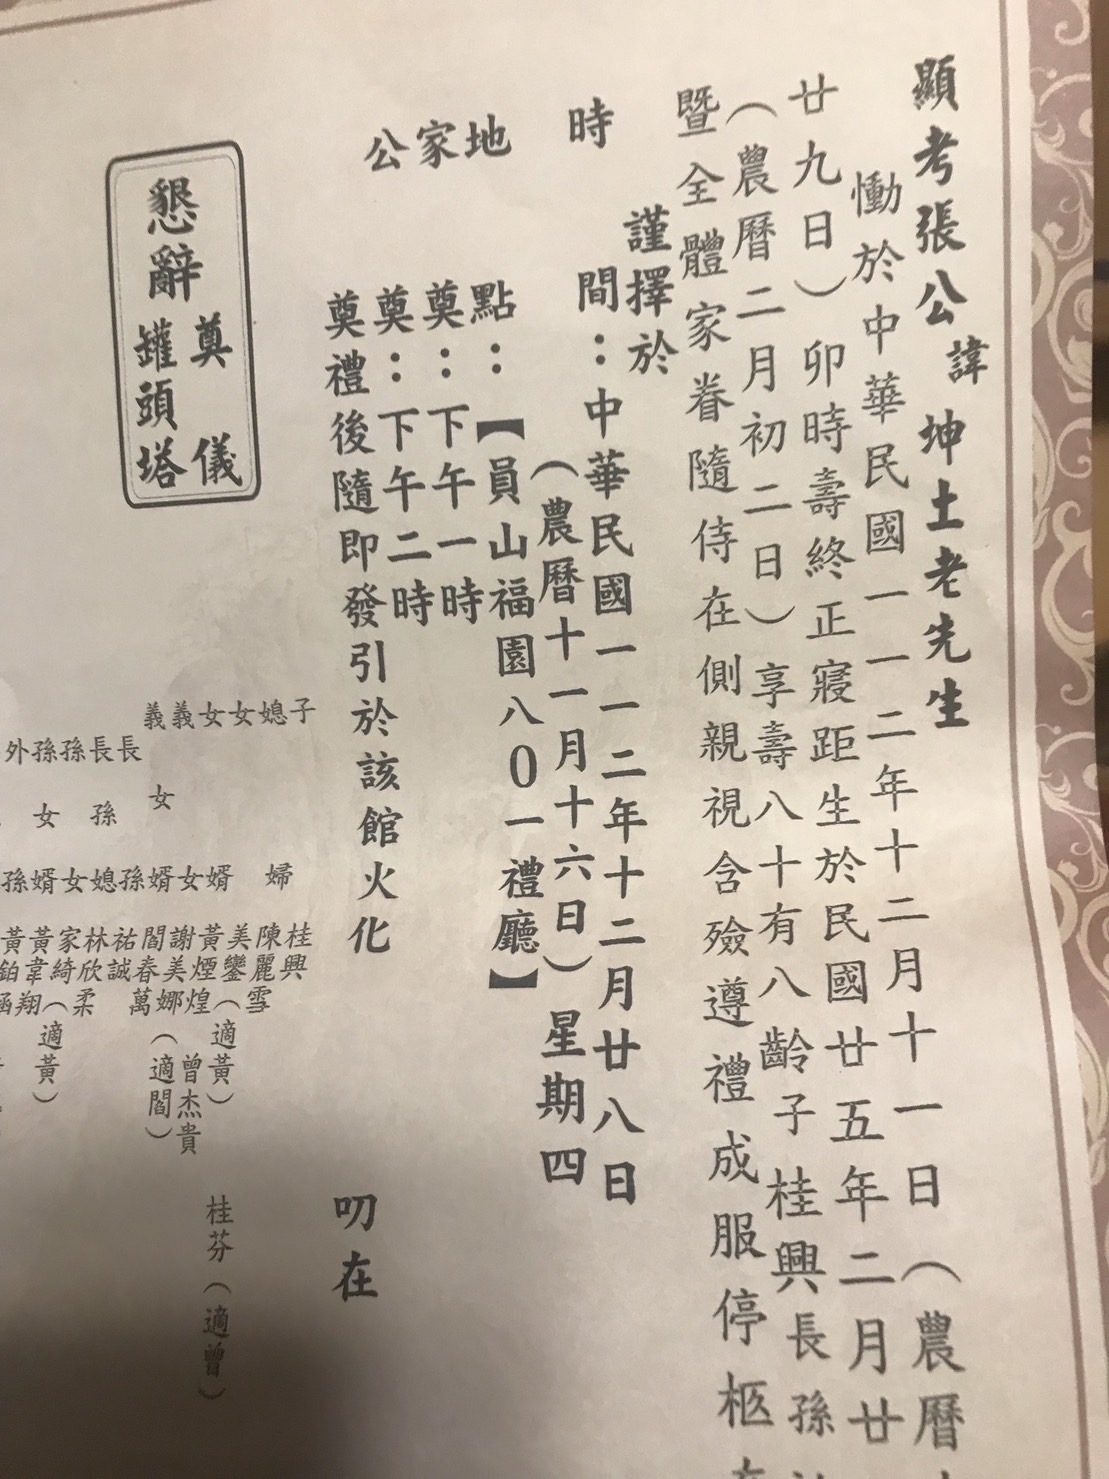 顯考張公諱坤土老先生
慟於中華民國一一二年十二月十一日（農曆
廿九日）卯時壽終正寢距生於民國廿五年二月廿
（農曆二月初二日）享壽八十有八齡子桂興長孫
暨全體家眷隨侍在側親視含殮遵禮成服停柩
謹擇於
時間：中華民國一一二年十二月廿八日
（農曆十一月十六日）星期四
地點：【員山福園八0一禮廳】
家奠：下午一時
公奠：下午二時
奠禮後隨即發引於該館火化
叨在
懇辭奠儀
罐頭塔
子 桂興
媳婦 陳麗雪
女 美鑾（適黃）
女婿 黃煙煌
桂芬（適曾）
曾杰貴
義女 謝美娜（適閻）
義婿 閻春萬
長孫 祐誠
長孫媳 林欣柔
孫女 家綺（適黃）
孫婿 黃韋翔
外孫 黃鉑涵